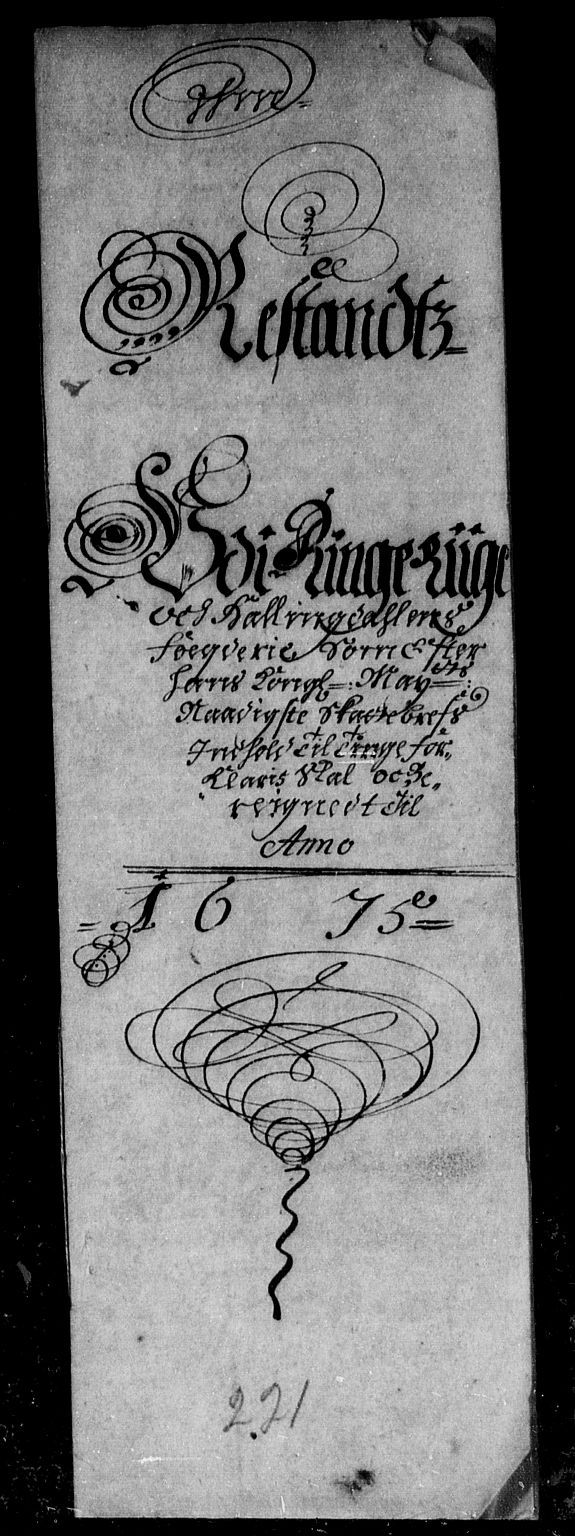 Restandtz
Udi Ringe Riige
och Hallingdahlens
foegderie Som Efter
hans Kongl: Mayts:
Naadigste Skattebrefs
Indhold til Tinge for„
Klaris Skal och Be„
reignedt til
Anno
= 16 75 =
221